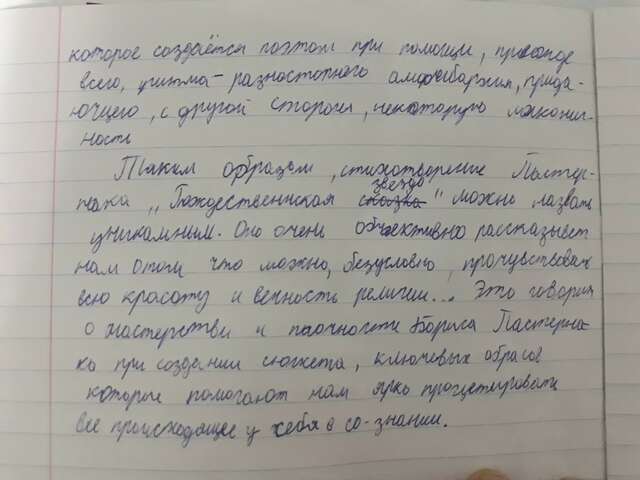 которое создаётся поэтом при помощи, прежде
всего, ритма - разностопного амфибрахия, прида-
ющего, с другой стороны, некоторую лаконич-
ность
Таким образом, стихотворение Пастер-
нака "Рождественская звезда" можно назвать
уникальным. Оно очень объективно рассказывает
нам о том что можно, безусловно, прочувствовать
всю красоту и вечность религии... Это говорит
о мастерстве и Бориса Пастерна-
ка при создании сюжета, ключевых образов
которые помогают нам ярко процитировать
все происходящее у себя в со-знании.